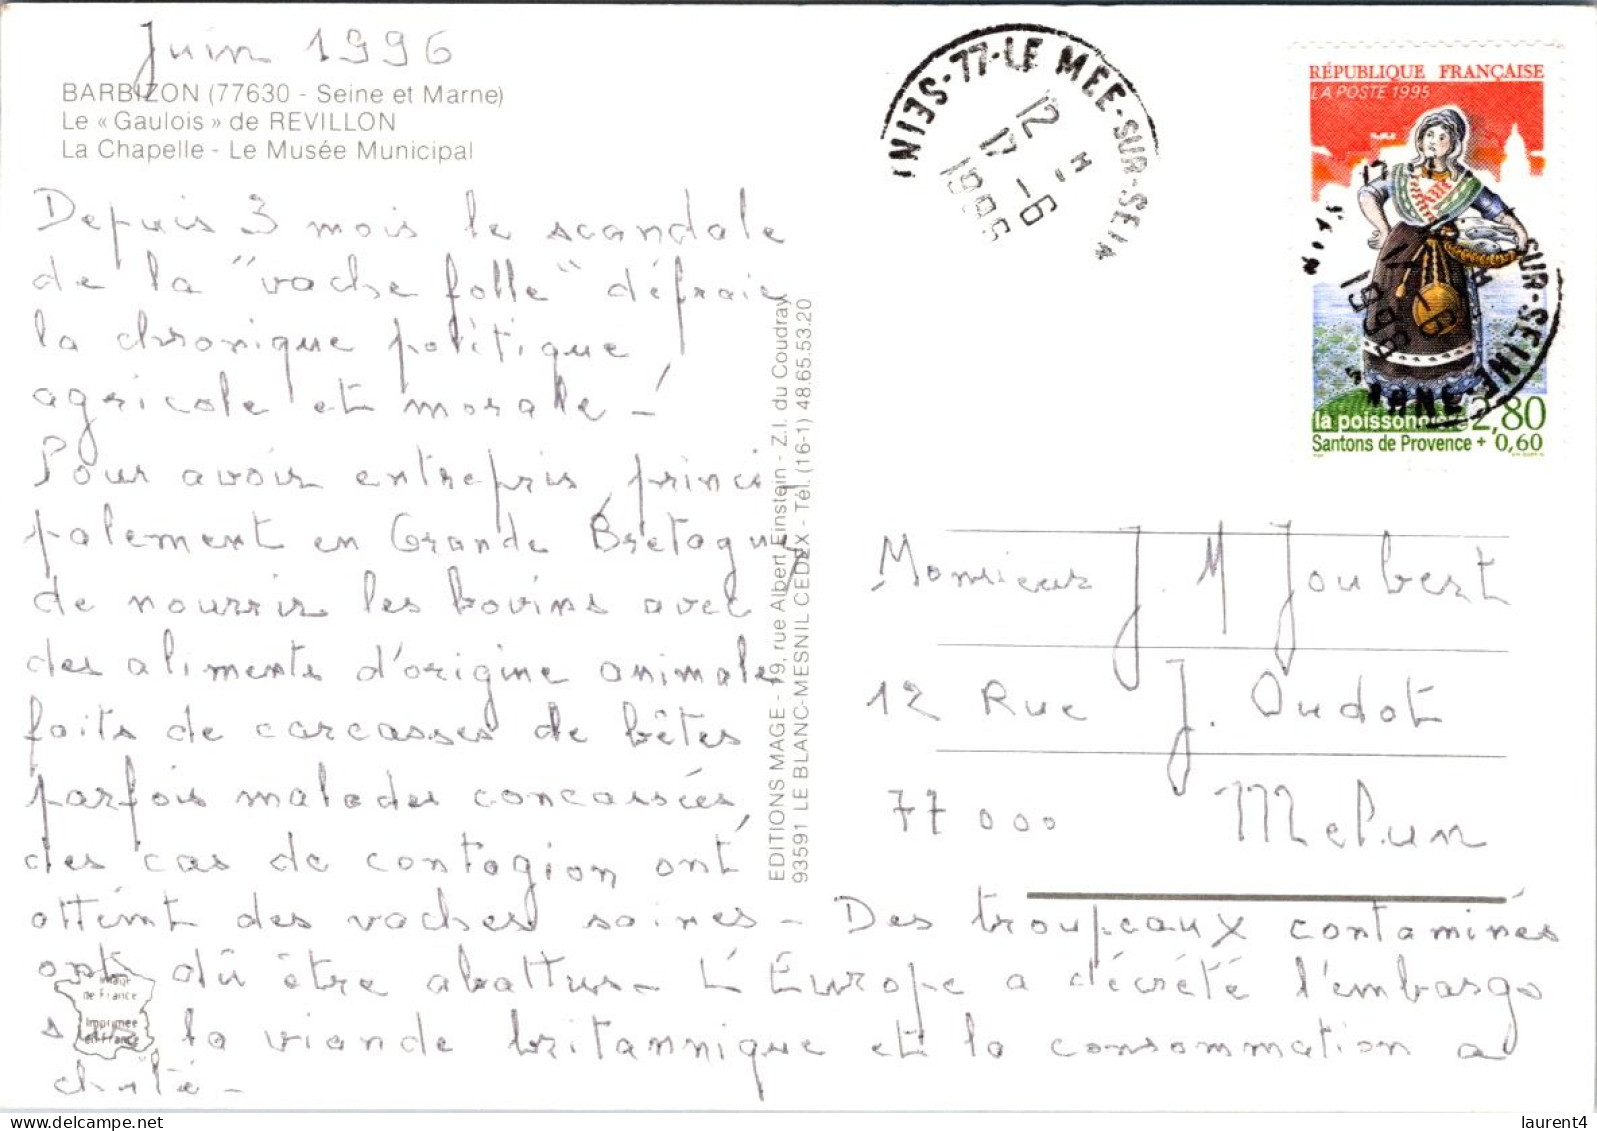 Juin 1996
BARBIZON (77630 - Seine et Marne)
Le « Gaulois » de REVILLON
La Chapelle - Le Musée Municipal
Depuis 3 mois le scandale
de la "vache folle" défraie
la chronique politique,
agricole et morale -
Pour avoir entrepris, princi
palement en Grande Bretagne,
de nourrir les bovins avec
des aliments d'origine animale
faits de carcasses de bêtes
parfois malades concassées,
des cas de contagion ont
atteint des vaches saines - Des troupeaux contaminés
ont dû être abattus - L'Europe a décrété l'embargo
sur la viande britannique et la consommation a
chuté -
Image
de France
Imprimée
en France
EDITIONS MAGE - 19, rue Albert Einstein - Z.I. du Coudray
93591 LE BLANC-MESNIL CEDEX - Tél. (16-1) 48.65.53.20
77-LE MEE-SUR-SEIN
12 H
17 -6
1996
RÉPUBLIQUE FRANÇAISE
LA POSTE 1995
SUR-SEINE
1996
la poissonnière 2,80
Santons de Provence + 0,60
Monsieur J. M Joubert
12 Rue J. Oudot
77 000 Melun
laurent4